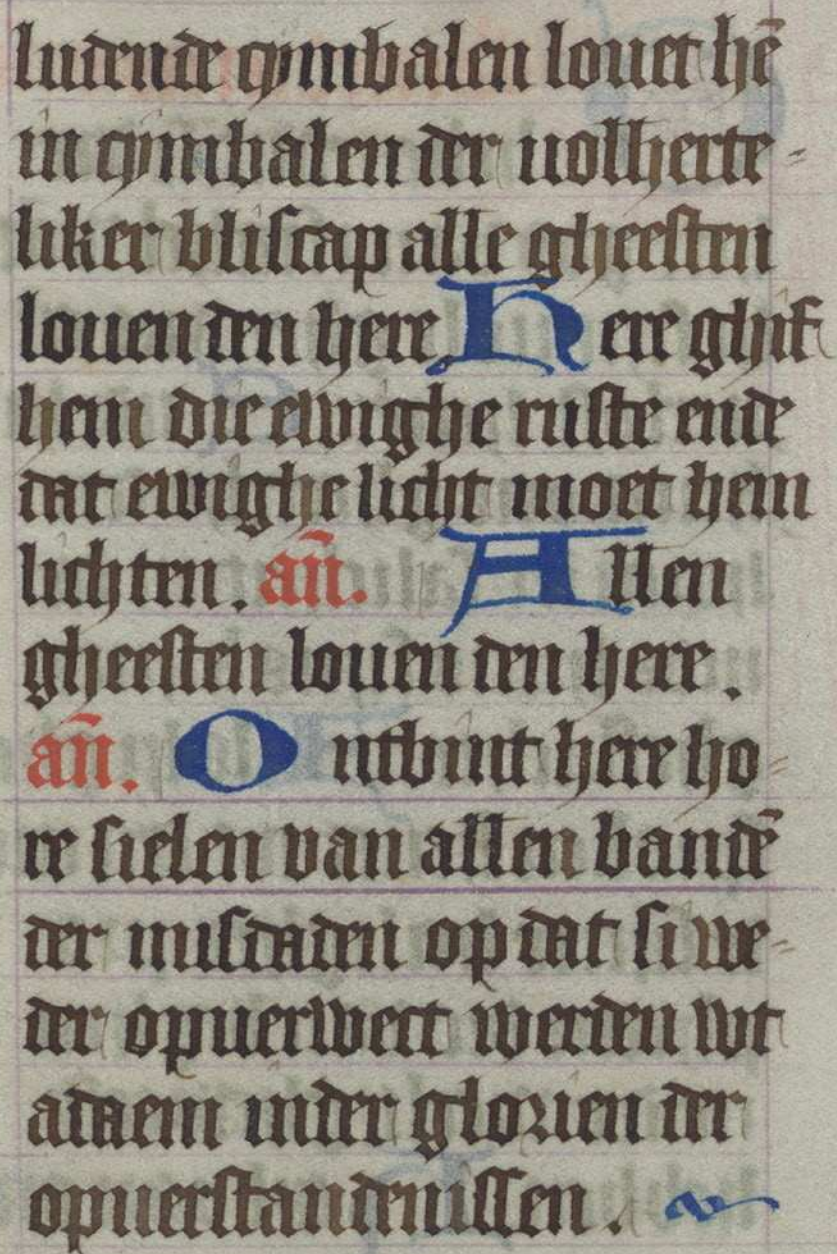 ludende cymbalen louet hē
in cymbalen der uolherte-
liker bliscap alle gheesten
louen den here Here ghif
hem die ewighe ruste ende
dat ewighe licht moet hem
lichten. an̄. Allen
gheesten louen den here.
an̄. Ontbint here ho-
re sielen van allen bandē
der misdaden op dat si we-
der opuerwect werden wt
adaem inder glorien der
opuerstandenissen.